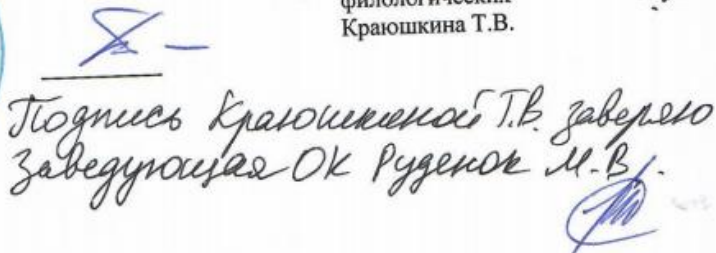 филологических
Краюшкина Т.В.
Подпись Краюшкиной Т.В. заверяю
Заведующая ОК Руденок М.В.